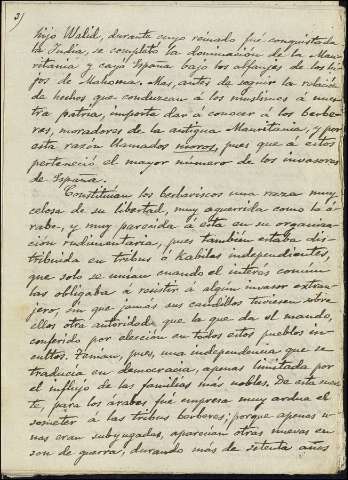 3)
hijo Walid, durante cuyo reinado fué conquistada
la India, se completó la dominación de la Mau-
ritania y cayó España bajo los alfanjes de los hi-
jos de Mahoma. Mas, antes de seguir la relación
de hechos que conducen á los muslimes á nues-
tra patria, importa dar á conocer á los berbe-
res, moradores de la antigua Mauritania, y por
esta razón llamados moros, pues que á estos
perteneció el mayor número de los invasores
de España.
Constituían los berberiscos una raza muy
celosa de su libertad, muy aguerrida como la á-
rabe, y muy parecida á ésta en su organiza-
ción rudimentaria, pues también estaba dis-
tribuida en tribus ó kabilas independientes,
que solo se unían cuando el interés comun
las obligaba á resistir á algún invasor extran-
jero, sin que jamás sus caudillos tuviesen sobre
ellos otra autoridad que la que da el mando,
conferido por elección en todos estos pueblos in-
cultos. Tenían, pues, una independencia que se
traducía en democracia, apenas limitada por
el influjo de las familias más nobles. De esta suer-
te, para los árabes fué empresa muy ardua el
someter á las tribus berberes; porque apenas u-
nas eran subyugadas, aparecían otras nuevas en
son de guerra, durando más de setenta años